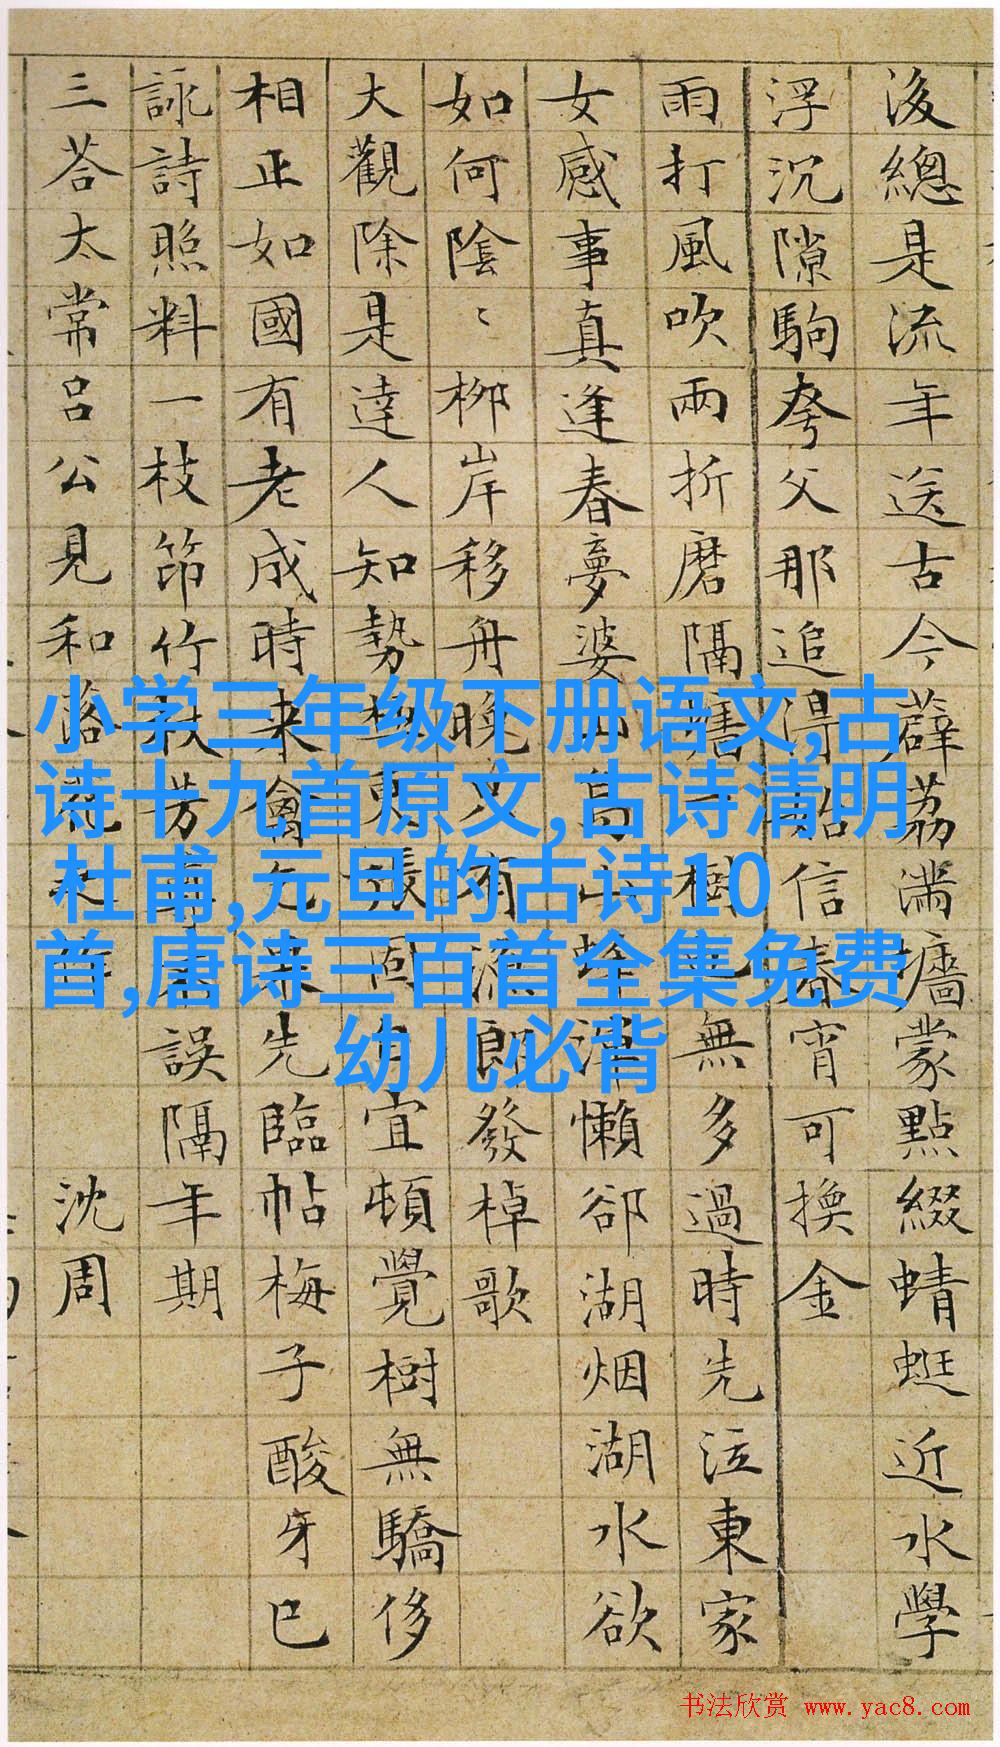 後總是流年送古今薜荔滿墻蒙點綴蜻蜓近水學
浮沉隙駒夸父那追得始信春宵可換金
雨打風吹兩折磨隔墻一樹已無多過時先泣東家
女感事真逢春夢婆山鳥山蜂渾懶卻湖烟湖水欲
如何陰〻柳岸移舟晚又有漁郎發棹歌
大觀除是達人知勢張同宜頓覺樹無驕侈
相正如國有老成時来禽先臨帖梅子酸牙已
詠詩照料一枝筇竹杖芳尊誤隔年期
三荅太常呂公見和落花之作 沈周
小学三年级下册语文,古
诗十九首原文,古诗清明
杜甫,元旦的古诗10
首,唐诗三百首全集免费
幼儿必背
书法欣赏 www.yac8.com